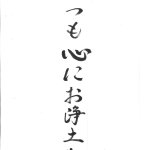 つも心にお浄土